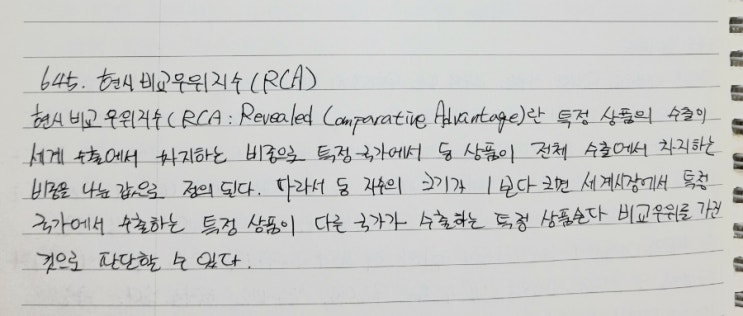 645. 현시비교우위지수(RCA)
현시비교우위지수(RCA: Revealed Comparative Advantage)란 특정 상품의 수출이
세계 수출에서 차지하는 비중으로 특정국가에서 동 상품이 전체 수출에서 차지하는
비중을 나눈 값으로 정의 된다. 따라서 동 지수의 크기가 1보다 크면 세계시장에서 특정
국가에서 수출하는 특정 상품이 다른 국가가 수출하는 특정 상품보다 비교우위를 가진
것으로 판단할 수 있다.